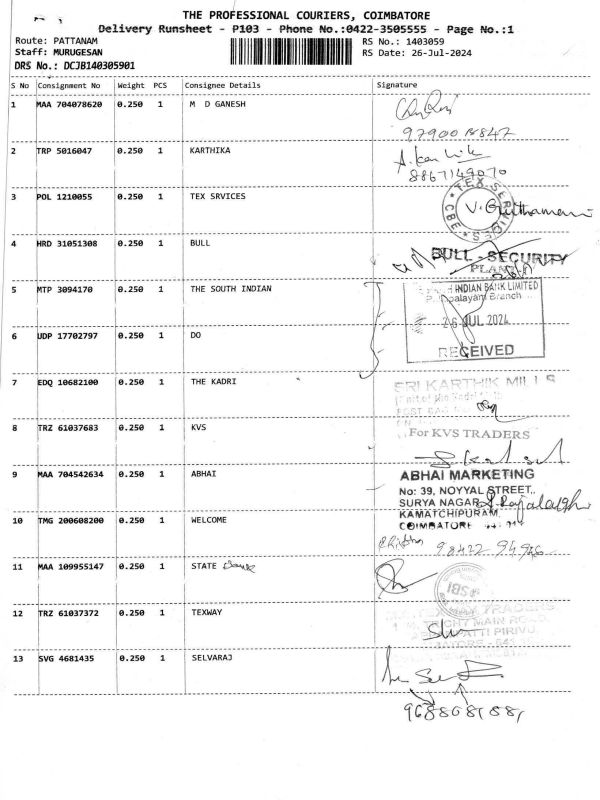 THE PROFESSIONAL COURIERS, COIMBATORE
Delivery Runsheet - P103 - Phone No.:0422-3505555 - Page No.:1
Route: PATTANAM RS No.: 1403059
Staff: MURUGESAN RS Date: 26-Jul-2024
DRS No.: DCJB140305901
S No Consignment No Weight PCS Consignee Details Signature
1 MAA 704078620 0.250 1 M D GANESH
2 TRP 5016047 0.250 1 KARTHIKA
8867149070
3 POL 1210055 0.250 1 TEX SRVICES
TEX SERVICES * CBE *
4 HRD 31051308 0.250 1 BULL
BULL - SECURITY
5 MTP 3094170 0.250 1 THE SOUTH INDIAN
INDIAN BANK LIMITED
Branch
26 JUL 2024
RECEIVED
6 UDP 17702797 0.250 1 DO
7 EDQ 10682100 0.250 1 THE KADRI
SRI KARTHIK MILLS
8 TRZ 61037683 0.250 1 KVS
For KVS TRADERS
9 MAA 704542634 0.250 1 ABHAI
ABHAI MARKETING
No: 39, NOYYAL STREET,
SURYA NAGAR
KAMATCHIPURAM,
COIMBATORE
10 TMG 200608200 0.250 1 WELCOME
11 MAA 109955147 0.250 1 STATE Bank
SBI
12 TRZ 61037372 0.250 1 TEXWAY
TRADERS
TRICHY MAIN ROAD,
13 SVG 4681435 0.250 1 SELVARAJ